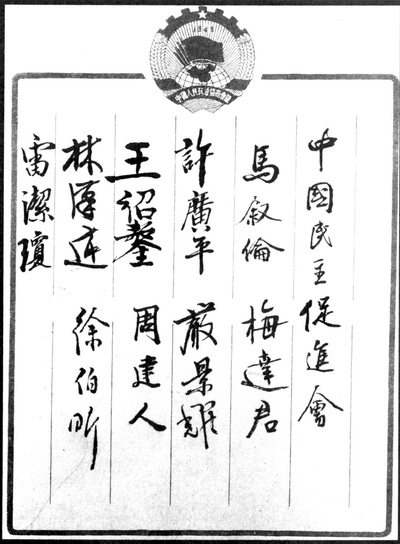 1949
中國人民政治協商會議
中國民主促進會
馬敘倫　梅達君
許廣平　嚴景耀
王紹鏊　周建人
林漢達　徐伯昕
雷潔瓊